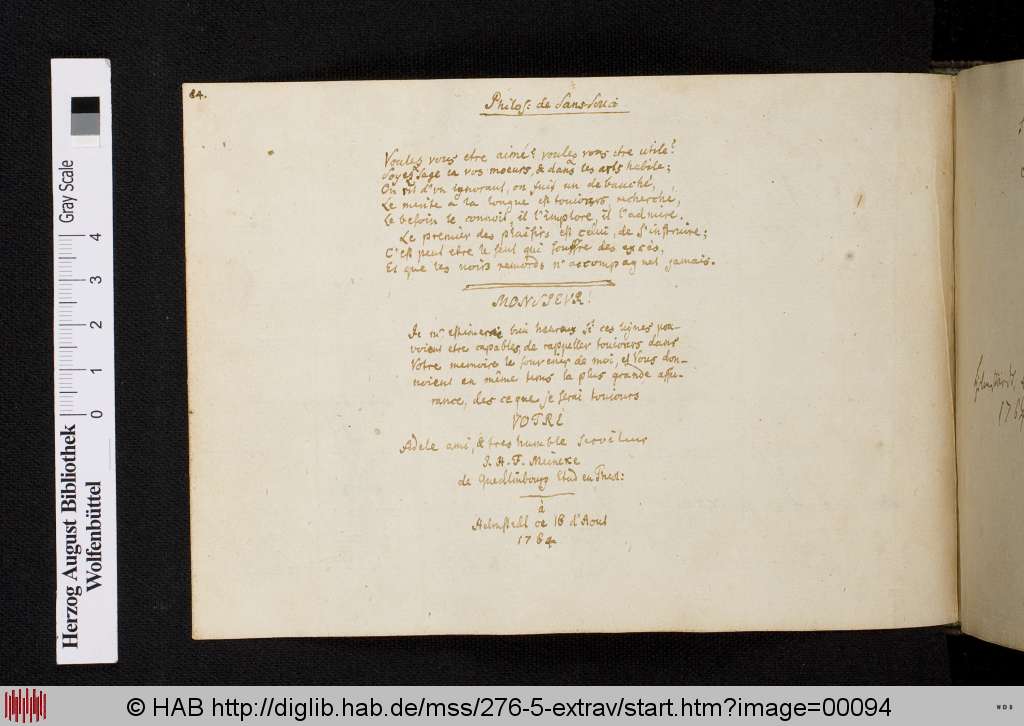 84.
Philos: de Sans-Souci
Voules vous etre aimé? voules vous etre utile?
Soyes sage en vos moeurs, & dans les arts habile;
On rit d'un ignorant, on fuit un debauché,
Le merite à la longue est toujours recherché,
Le besoin le connoit, il l'implore, il l'admire.
Le premier des plaisirs est celui, de s'instruire;
C'est peut etre le seul qui souffre des excès,
Et que les noirs remords n'accompagnet jamais.
MONSIEUR!
Je m'estimerai bien heureux si ces lignes pou-
voient etre capables, de rappeller toujours dans
Votre memoire le souvenir de moi, et Vous don-
noient en même tems la plus grande assu-
rance, des ce que je serai toujours
VOTRE
fidele ami, & tres humble serviteur
J. H. F. Meineke
de Quedlinbourg Etud en Theol:
à
Helmstedt ce 18 d'Aout
1784
178
Herzog August Bibliothek
Wolfenbüttel
Gray Scale
0 1 2 3 4
© HAB http://diglib.hab.de/mss/276-5-extrav/start.htm?image=00094
WDB